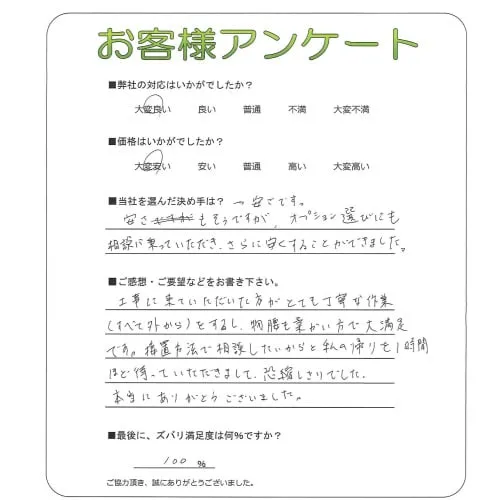 お客様アンケート
■弊社の対応はいかがでしたか？
大変良い 良い 普通 不満 大変不満
■価格はいかがでしたか？
大変安い 安い 普通 高い 大変高い
■当社を選んだ決め手は？ →安さです。
安さもそうですが、オプション選びにも
相談に乗っていただき、さらに安くすることができました。
■ご感想・ご要望などをお書き下さい。
工事に来ていただいた方がとても丁寧な作業
(すべて外から)をするし、物腰も柔かい方で大満足
です。設置方法で相談したいからと私の帰りも1時間
ほど待っていただきまして、恐縮しきりでした。
本当にありがとうございました。
■最後に、ズバリ満足度は何％ですか？
100 ％
ご協力頂き、誠にありがとうございました。